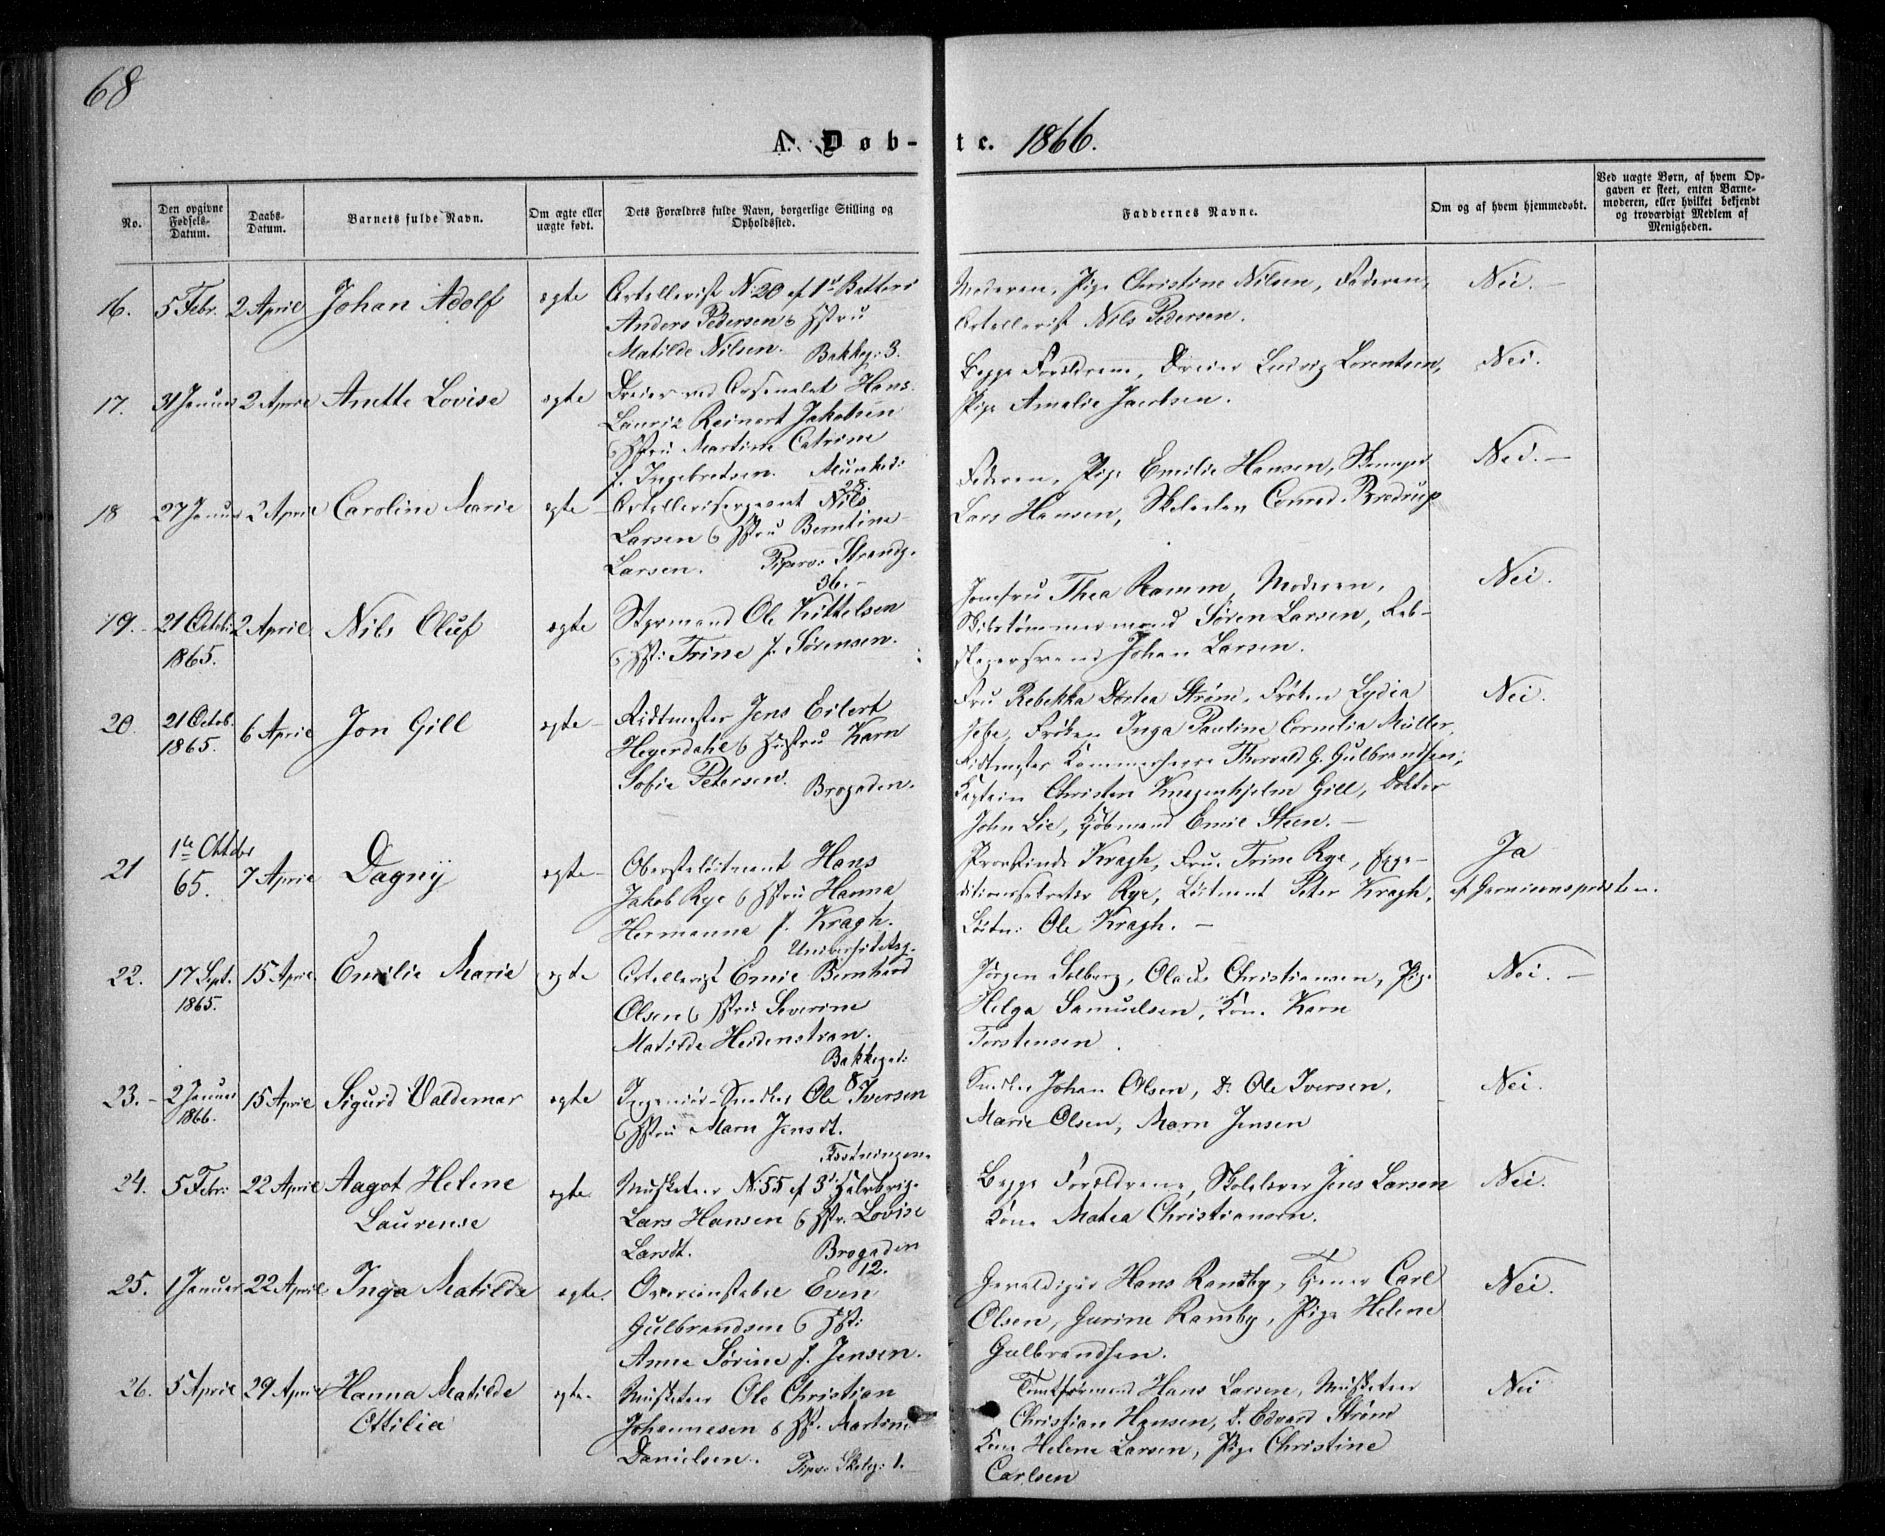 68
A. Døb-te. 1866.
No.
Den opgivne Fødsels-Datum.
Daabs-Datum.
Barnets fulde Navn.
Om ægte eller uægte født.
Dets Forældres fulde Navn, borgerlige Stilling og Opholdssted.
Faddernes Navne.
Om og af hvem hjemmedøbt.
Ved uægte Børn, af hvem Opgaven er skeet, enten Barnemoderen, eller hvilket bekjendt og troværdigt Medlem af Menigheden.
16. 5 Febr. 2 April Johan Adolf ægte
Artellerist N: 20 af 1ste Batteri
Anders Pedersen & Hstru
Matilde Nilsen. Bakkeg: 3.
Moderen, Pige Christine Nilsen, Faderen, Nei.
Artellerist Nils Pedersen.
17. 31 Januar 2 April Anette Lovise ægte
Dreier ved Arsenalet Hans
Lauriz Reinert Jakobsen
& Hstru Martine Catrine
f. Ingebretsen. Munked:
28.
Begge Forældrene, Dreier Ludvig Lorentsen, Nei.
Pige Amalie Jacobsen.
18 27 Januar 2 April Caroline Marie ægte
Artellerisergeant Nils
Larsen & Hstru Berntine
Larsen. Piperv: Strandg.
36.
Faderen, Pige Emilie Hansen, Nei.
Lars Hansen, Conrad Brodrup
19. 21 Octob: 1865. 2 April Nils Oluf ægte
Styrmand Ole Kittelsen
& Hst: Trine f. Sørensen.
Jomfru Thea Ramm, Moderen, Nei.
Skibstømmermand Søren Larsen, Reb-
slagersvend Johan Larsen.
20. 21 Octob. 1865. 6 April Jon Gill ægte
Ridtmester Jens Eilert
Heyerdahl & Hustru Karn
Sofie Petersen. Brogaden.
Fru Rebekka Dortea Strøm, Frøken Lydia Nei.
Frøken Inga Pauline Cornelia Müller,
Ridtmester Kammerherre Thorvald G. Gulbrandsen,
Kaptein Christen Knagenhjelm Gill, Doktor
John Lie, Kjøbmand Emil Steen.
21 1ste Oktober 65. 7 April Dagny ægte
Oberstløitnant Hans
Jakob Rye & Hstru Hanna
Hermanna f. Kragh.
Universitetsg.
Provstinde Kragh, Frue Trine Rye, Expe- Ja
ditionssekretær Rye, Løitnant Peter Kragh, af Garnisonspresten.
Løitn: Ole Kragh.
22. 17 Sept. 1865. 15 April Emilie Marie ægte
Artellerist Emil Bernhard
Olsen & Hstru Severine
Matilde Heidenstrøm.
Bakkegad:
8
Jørgen Solberg, Olaus Christiansen, Pige Nei.
Helga Samuelsen, Kone Karn
Torstensen.
23. 2 Januar 1866. 15 April Sigurd Valdemar ægte
Ingeniør-Snedker Ole Iversen
& Hstru Marn Jensdt.
Fæstningen.
Snedker Johan Olsen, D: Ole Iversen, Nei.
Marie Olsen, Marn Jensen
24. 5 Febr: 22 April Aagot Helene Laurense ægte
Musketeer N: 55 af 3die Halvbrig.
Lars Hansen & Hstr. Lovise
Larsdt. Brogaden
12.
Begge Forældrene, Skolelærer Jens Larsen Nei.
Kone Matea Christiansen.
25. 1 Januar 22 April Inga Matilde ægte.
Overconstabel Even
Gulbrandsen & Hst:
Anne Sørine f. Jensen.
Hans Ramsby, Tjener Carl Nei.
Olsen, Gurine Ramsby, Pige Helene
Gulbrandsen.
26. 5 April 29 April Hanna Matilde Ottilia ægte.
Musketeer Ole Christian
Johannesen & Hst. Martine
Danielsen. Piperv: Skoleg: 1.
Tomtformand Hans Larsen, Musketeer Nei
Christian Hansen, D. Edvard Strøm
Kone Helene Larsen, Pige Christine
Carlsen